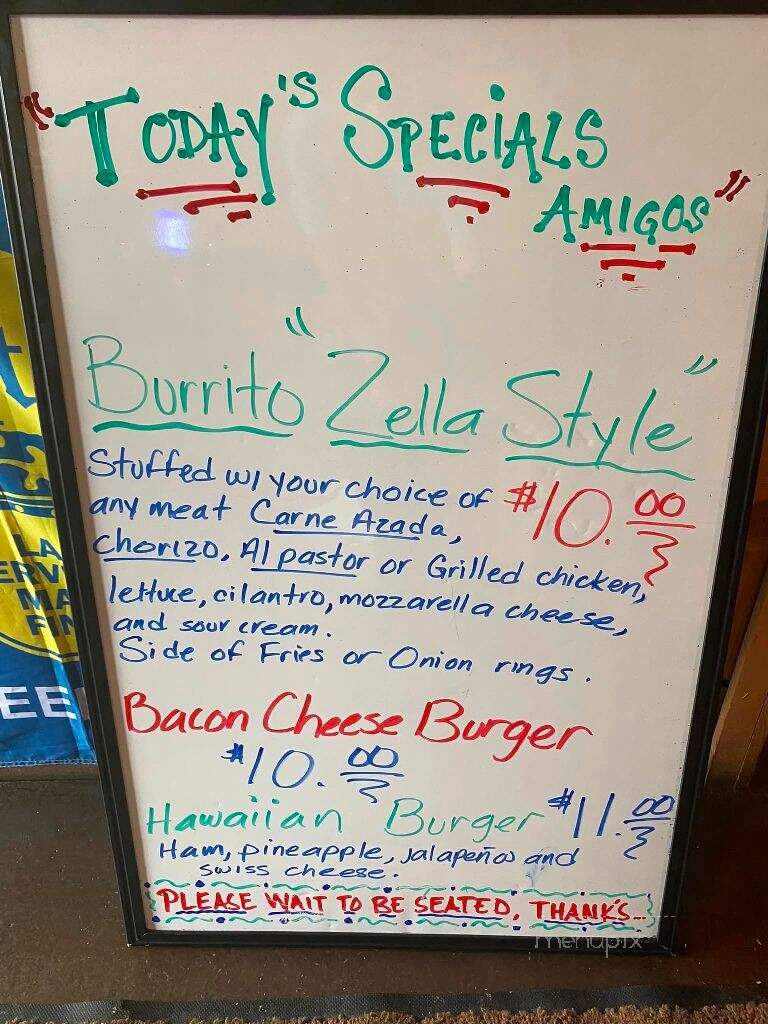 "TODAY'S SPECIALS
AMIGOS"
Burrito "Zella Style"
Stuffed w/ your choice of $10.00
any meat Carne Azada,
Chorizo, Al pastor or Grilled chicken,
lettuce, cilantro, mozzarella cheese,
and sour cream.
Side of Fries or Onion rings.
Bacon Cheese Burger
$10.00
Hawaiian Burger $11.00
Ham, pineapple, jalapeños and
swiss cheese.
PLEASE WAIT TO BE SEATED, THANKS...
menupix